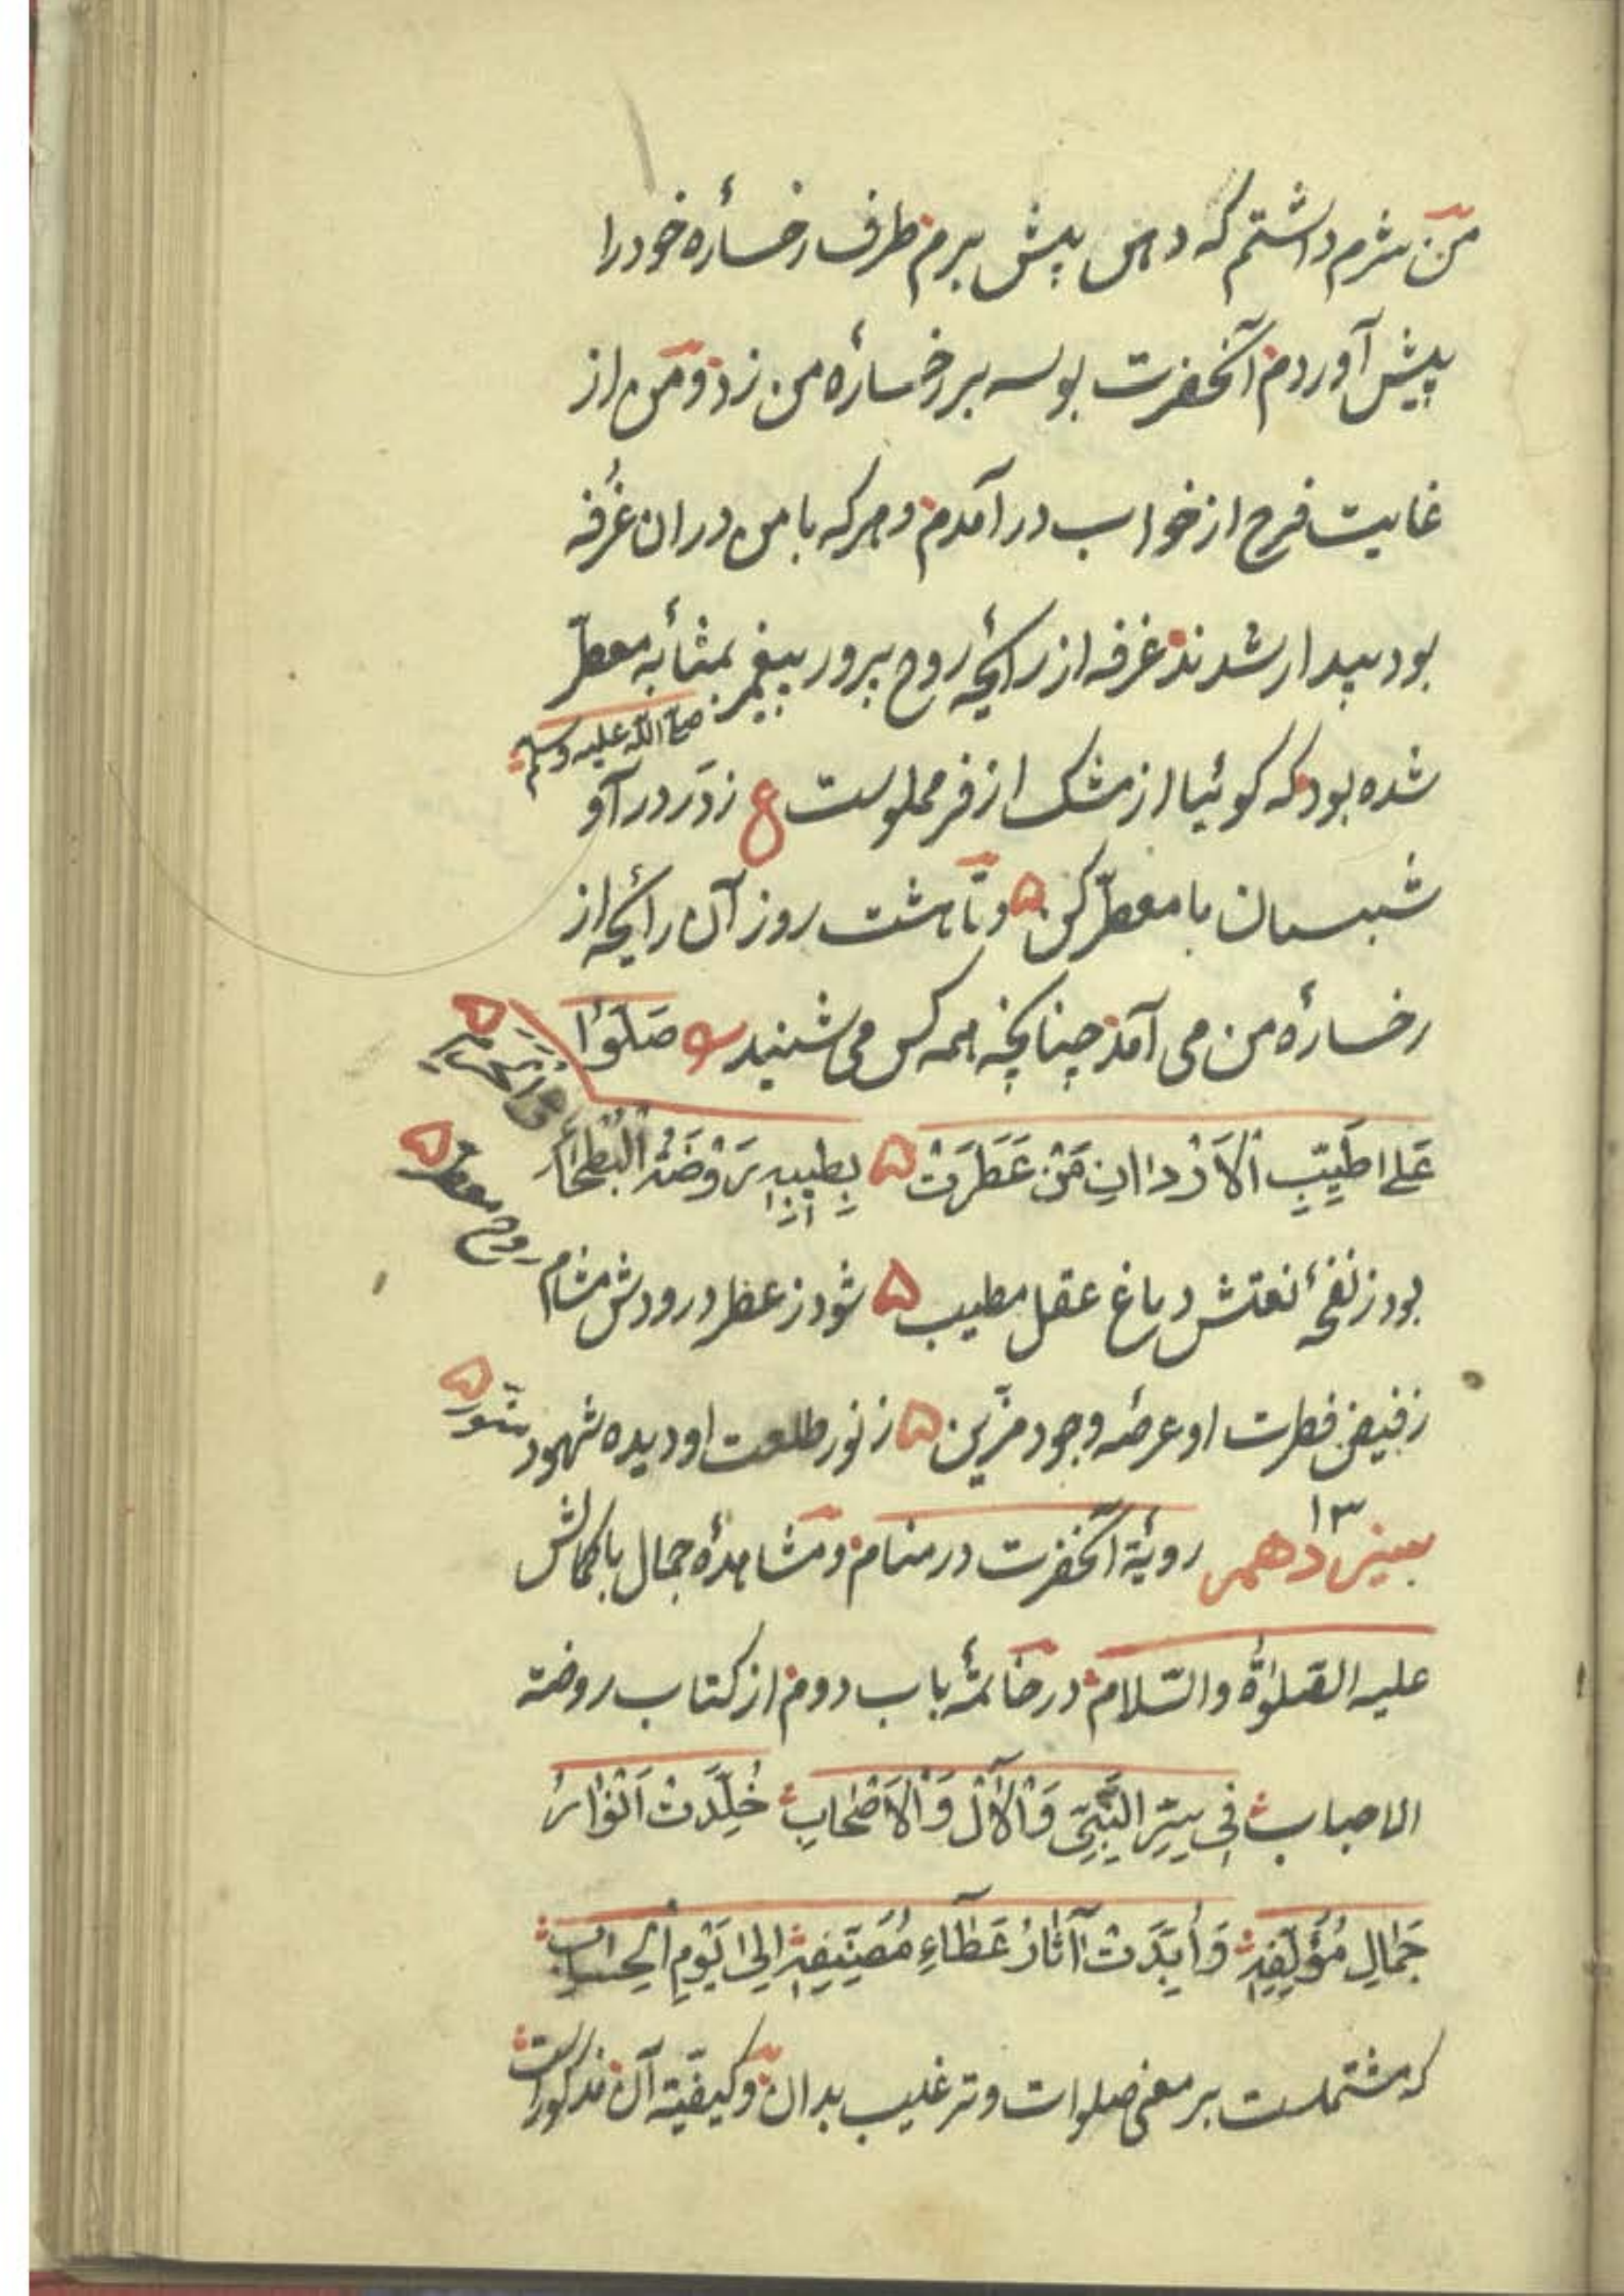 من شرم داشتم که دهن پیش برم طرف رخسارهٔ خود را
پیش آوردم آنحضرت بوسه بر رخسارهٔ من زد و من از
غایت فرح از خواب در آمدم و هرکه با من در ان غُرفه
بود بیدار شدند غرفه از رائحهٔ روح پرور پیغمبر بمثابهٔ معطّر
صلی الله علیه وسلم
شده بود که گوئیا از مشک ازفر مملوست ع ز دَر در آ و
شبستان ما معطّر کن و تا هشت روز آن رائحه از
رخسارهٔ من می آمد چنانچه همه کس می شنید صَلّوُا
عَلی اطیَبِ الاَرْدانِ مَنْ عَطَرَتْ بِطیبِهِ رَوْضَةُ الْبَطْحَاءِ
بود ز نفحهٔ نعتش دماغ عقل مطیب شود ز عطر درودش مشام روح معطر
ز فیض فطرت او عرصهٔ وجود مزّین ز نور طلعت او دیده شهود منّور
سیزدهم ۱۳ رویة آنحضرت در منام و مشاهدهٔ جمال باکمالش
علیه الصّلوٰة والسّلام در خاتمهٔ باب دوم از کتاب روضة
الاحباب فی سِیَرِ النَّبِیّ وَالْآلِ وَالْاَصْحَابِ خُلِّدَتْ اَنْوَارُ
جَمَالِ مُؤَلِّفِهِ وَ اُبِّدَتْ آثارُ عَطَاءِ مُصَنِّفِهِ اِلی یَوْمِ الْحِسابِ
که مشتملست بر معنی صلوات و ترغیب بدان و کیفیّة آن مذکورست